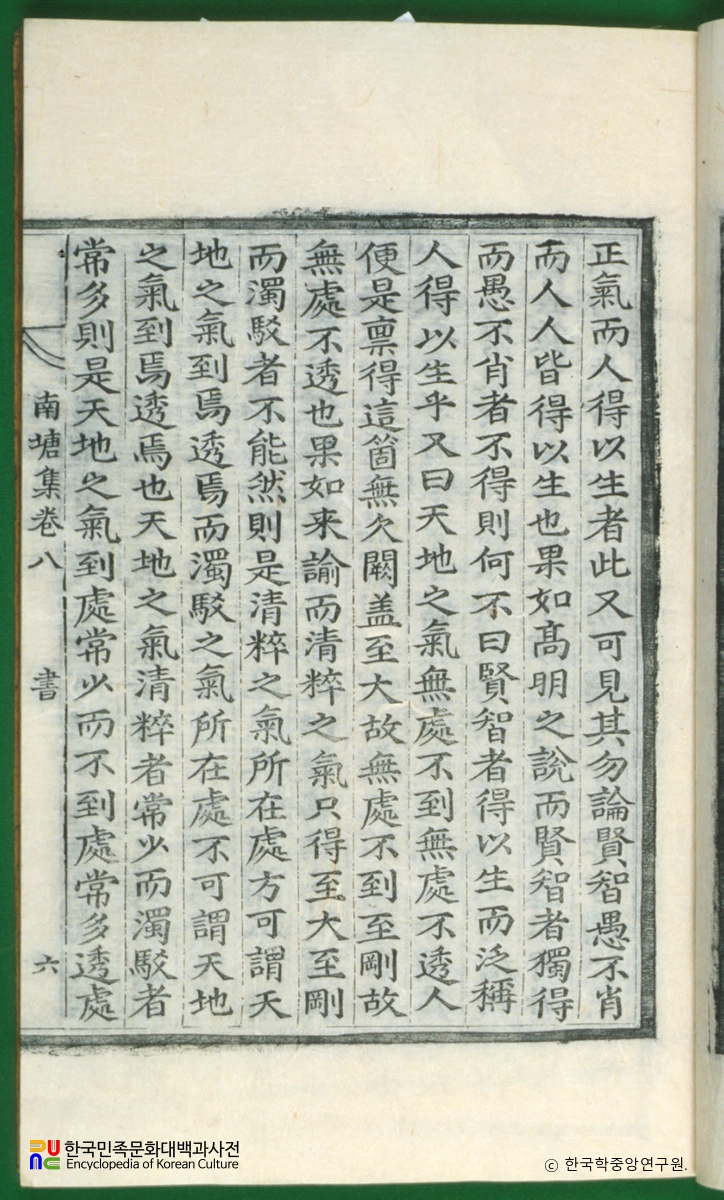 正氣而人得以生者此又可見其勿論賢智愚不肖
而人人皆得以生也果如高明之說而賢智者獨得
而愚不肖者不得則何不曰賢智者得以生而泛稱
人得以生乎又曰天地之氣無處不到無處不透人
便是禀得這箇無欠闕盖至大故無處不到至剛故
無處不透也果如来諭而清粹之氣只得至大至剛
而濁駁者不能然則是清粹之氣所在處方可謂天
地之氣到焉透焉而濁駁之氣所在處不可謂天地
之氣到焉透焉也天地之氣清粹者常少而濁駁者
常多則是天地之氣到處常少而不到處常多透處
南塘集卷八 書 六
한국민족문화대백과사전
Encyclopedia of Korean Culture
ⓒ 한국학중앙연구원.